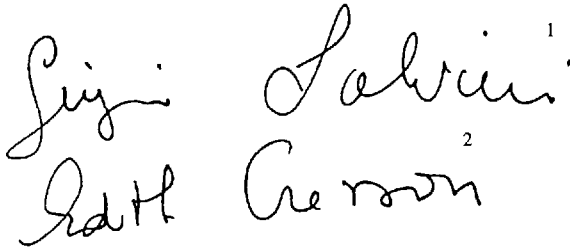 Salvini 1
Edith Cresson 2